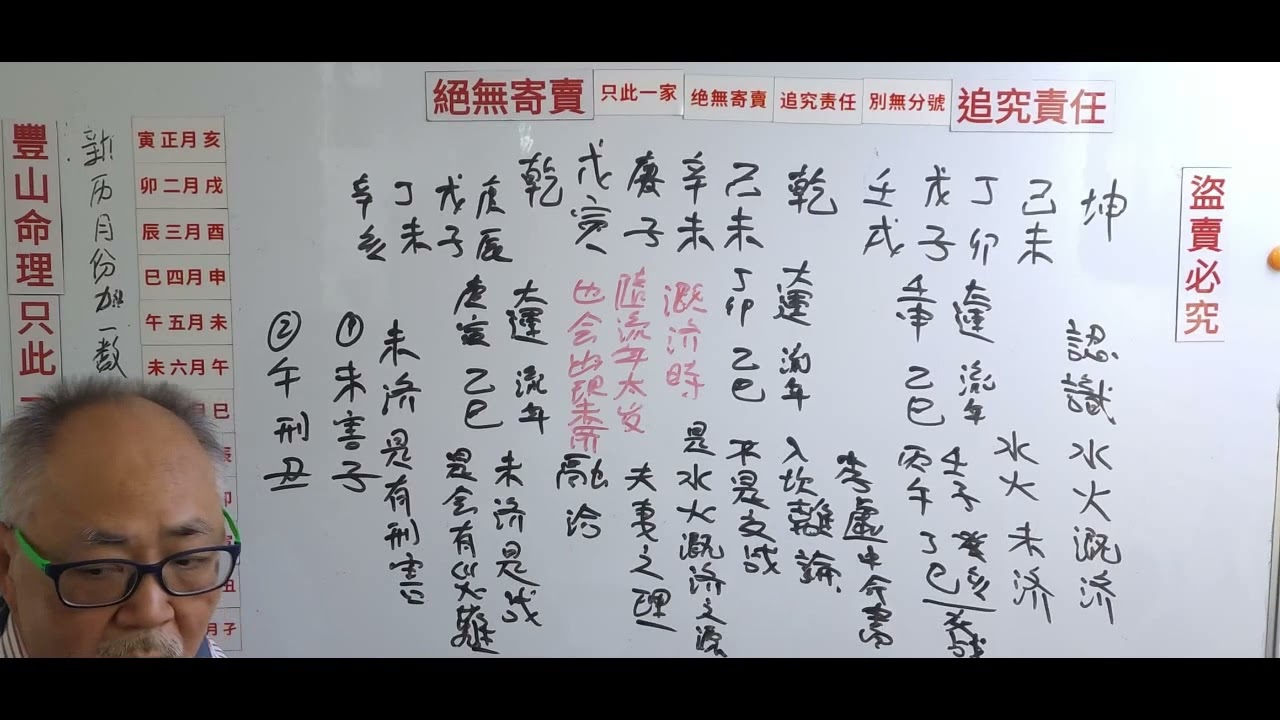 絕無寄賣
只此一家
绝無寄賣
追究责任
別無分號
追究責任
盜賣必究
坤
己未
丁卯
戊子
壬戌
認識水火溉济
水火未济
大運 流年
壬申 乙巳
壬子 癸亥
丙午 丁巳
李虛中命書
乾
己未
辛未
庚子
戊寅
大運 流年
丁卯 乙巳
入坎離論
不是交战
是水火溉济之源
夫妻之理
溉济時
隨流年太岁
也会出現未所
融洽
乾
庚辰
戊子
丁未
辛亥
大運 流年
庚寅 乙巳
未济是战
是会有災難
未济是有刑害
①未害子
②午刑丑
新历月份加一数
寅正月亥
卯二月戌
辰三月酉
巳四月申
午五月未
未六月午
豐山命理
只此一